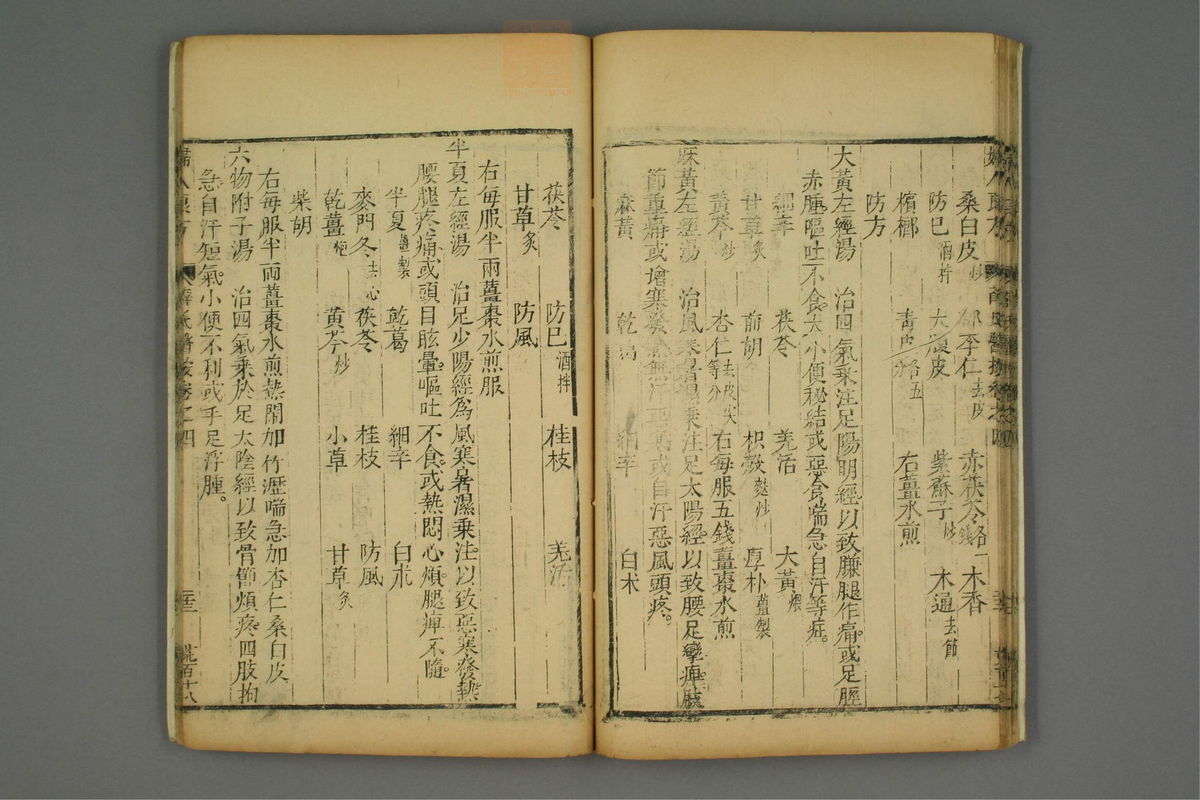 桑白皮炒 郁李仁去皮 赤茯苓各一錢 木香
防巳酒拌 大腹皮 紫蘇子炒 木通去節
檳榔 青皮各五分 右薑水煎
防方
大黃左經湯 治四氣乘注足陽明經以致腰腿作痛或足脛
赤腫嘔吐不食大小便秘結或惡食喘急自汗等症
細辛 茯苓 羌活 大黃煨
甘草炙 前胡 枳殼麩炒 厚朴薑製
黃芩炒 杏仁去皮尖等分 右每服五錢薑棗水煎
麻黃左經湯 治風寒暑濕乘注足太陽經以致腰足攣痺關
節重痛或增寒發熱無汗或自汗惡風頭疼
麻黃 乾葛 細辛 白术
茯苓 防巳酒拌 桂枝 羌活
甘草炙 防風
右每服半兩薑棗水煎服
半夏左經湯 治足少陽經為風寒暑濕乘注以致惡寒發熱
腰腿疼痛或頭目眩暈嘔吐不食或熱悶心煩腿痺不隨
半夏薑製 乾葛 細辛 白朮
麥門冬去心 茯苓 桂枝 防風
乾薑炮 黃芩炒 小草 甘草炙
柴胡
右每服半兩薑棗水煎熱悶加竹瀝喘急加杏仁桑白皮
六物附子湯 治四氣乘於足太陰經以致骨節煩疼四肢拘
急自汗短氣小便不利或手足浮腫。
婦人良方 薛氏醫按卷之四